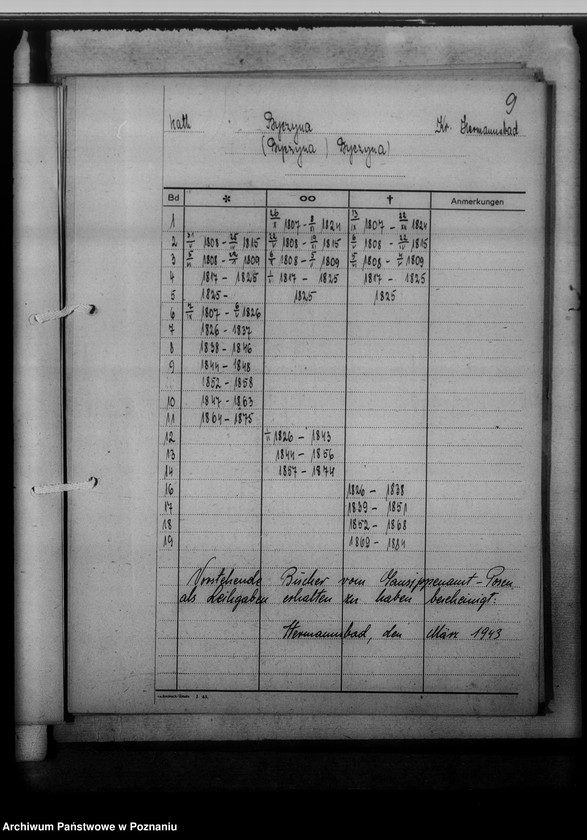 9
kath. Byczyna Kr. Hermannsbad
(Byczyna / Byczyna)
Bd * ∞ † Anmerkungen
1 26/X 1807 - 8/XI 1824 13/IX 1807 - 22/XII 1824
2 1808 - 1815 1808 - 1815 1808 - 1815
3 1808 - 1809 1808 - 1809 1808 - 1809
4 1817 - 1825 1817 - 1825 1817 - 1825
5 1825 - 1825 1825
6 1807 - 1826
7 1826 - 1837
8 1838 - 1846
9 1844 - 1848
1852 - 1858
10 1847 - 1863
11 1864 - 1875
12 1826 - 1843
13 1844 - 1856
14 1857 - 1874
16 1826 - 1838
17 1839 - 1851
18 1852 - 1868
19 1869 - 1884
Vorstehende Bücher vom Gausippenamt-Posen
als Leihgaben erhalten zu haben bescheinigt:
Hermannsbad, den März 1943
Archiwum Państwowe w Poznaniu